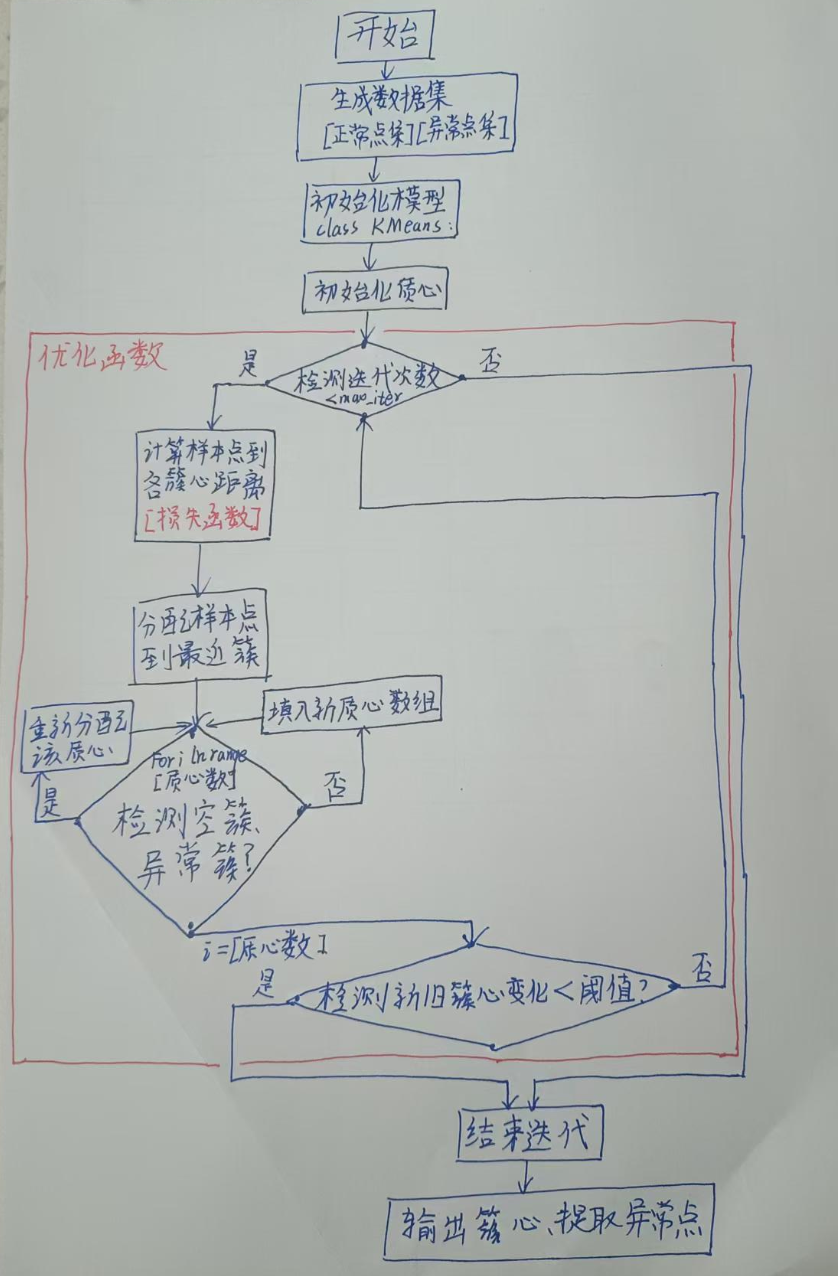 开始
生成数据集
[正常点集][异常点集]
初始化模型
class KMeans:
初始化质心
优化函数
是
检测迭代次数
<max_iter
否
计算样本点到
各簇心距离
[损失函数]
分配样本点
到最近簇
重新分配
该质心
填入新质心数组
是
For i ln range
[质心数]
检测空簇、
异常簇?
否
i=[质心数]
是
检测新旧簇心变化<阈值?
否
结束迭代
输出簇心、提取异常点